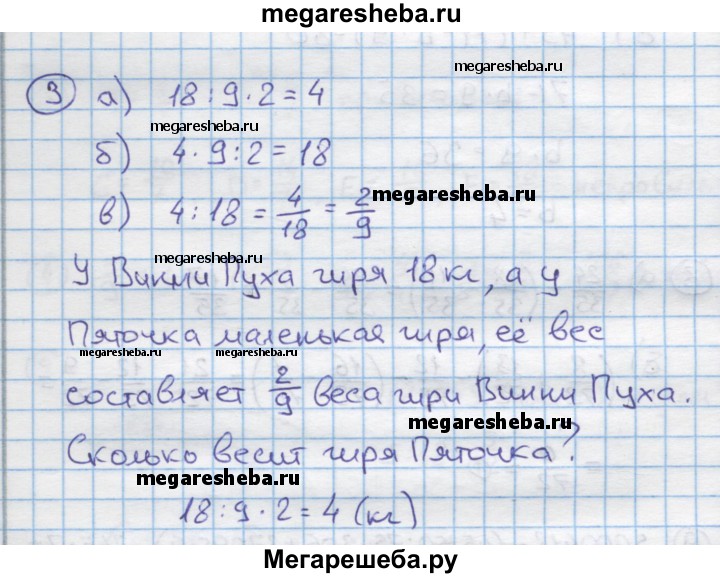 megaresheba.ru
3 а) 18 : 9 · 2 = 4
megaresheba.ru
megaresheba.ru
б) 4 · 9 : 2 = 18
в) 4 : 18 = 4/18 = 2/9
megaresheba.ru
megaresheba.ru
У Винни Пуха гиря 18 кг, а у
Пяточка маленькая гиря, её вес
megaresheba.ru
megaresheba.ru
составляет 2/9 веса гири Винни Пуха.
Сколько весит гиря Пяточка?
megaresheba.ru
18 : 9 · 2 = 4 (кг)
Мегарешеба.ру